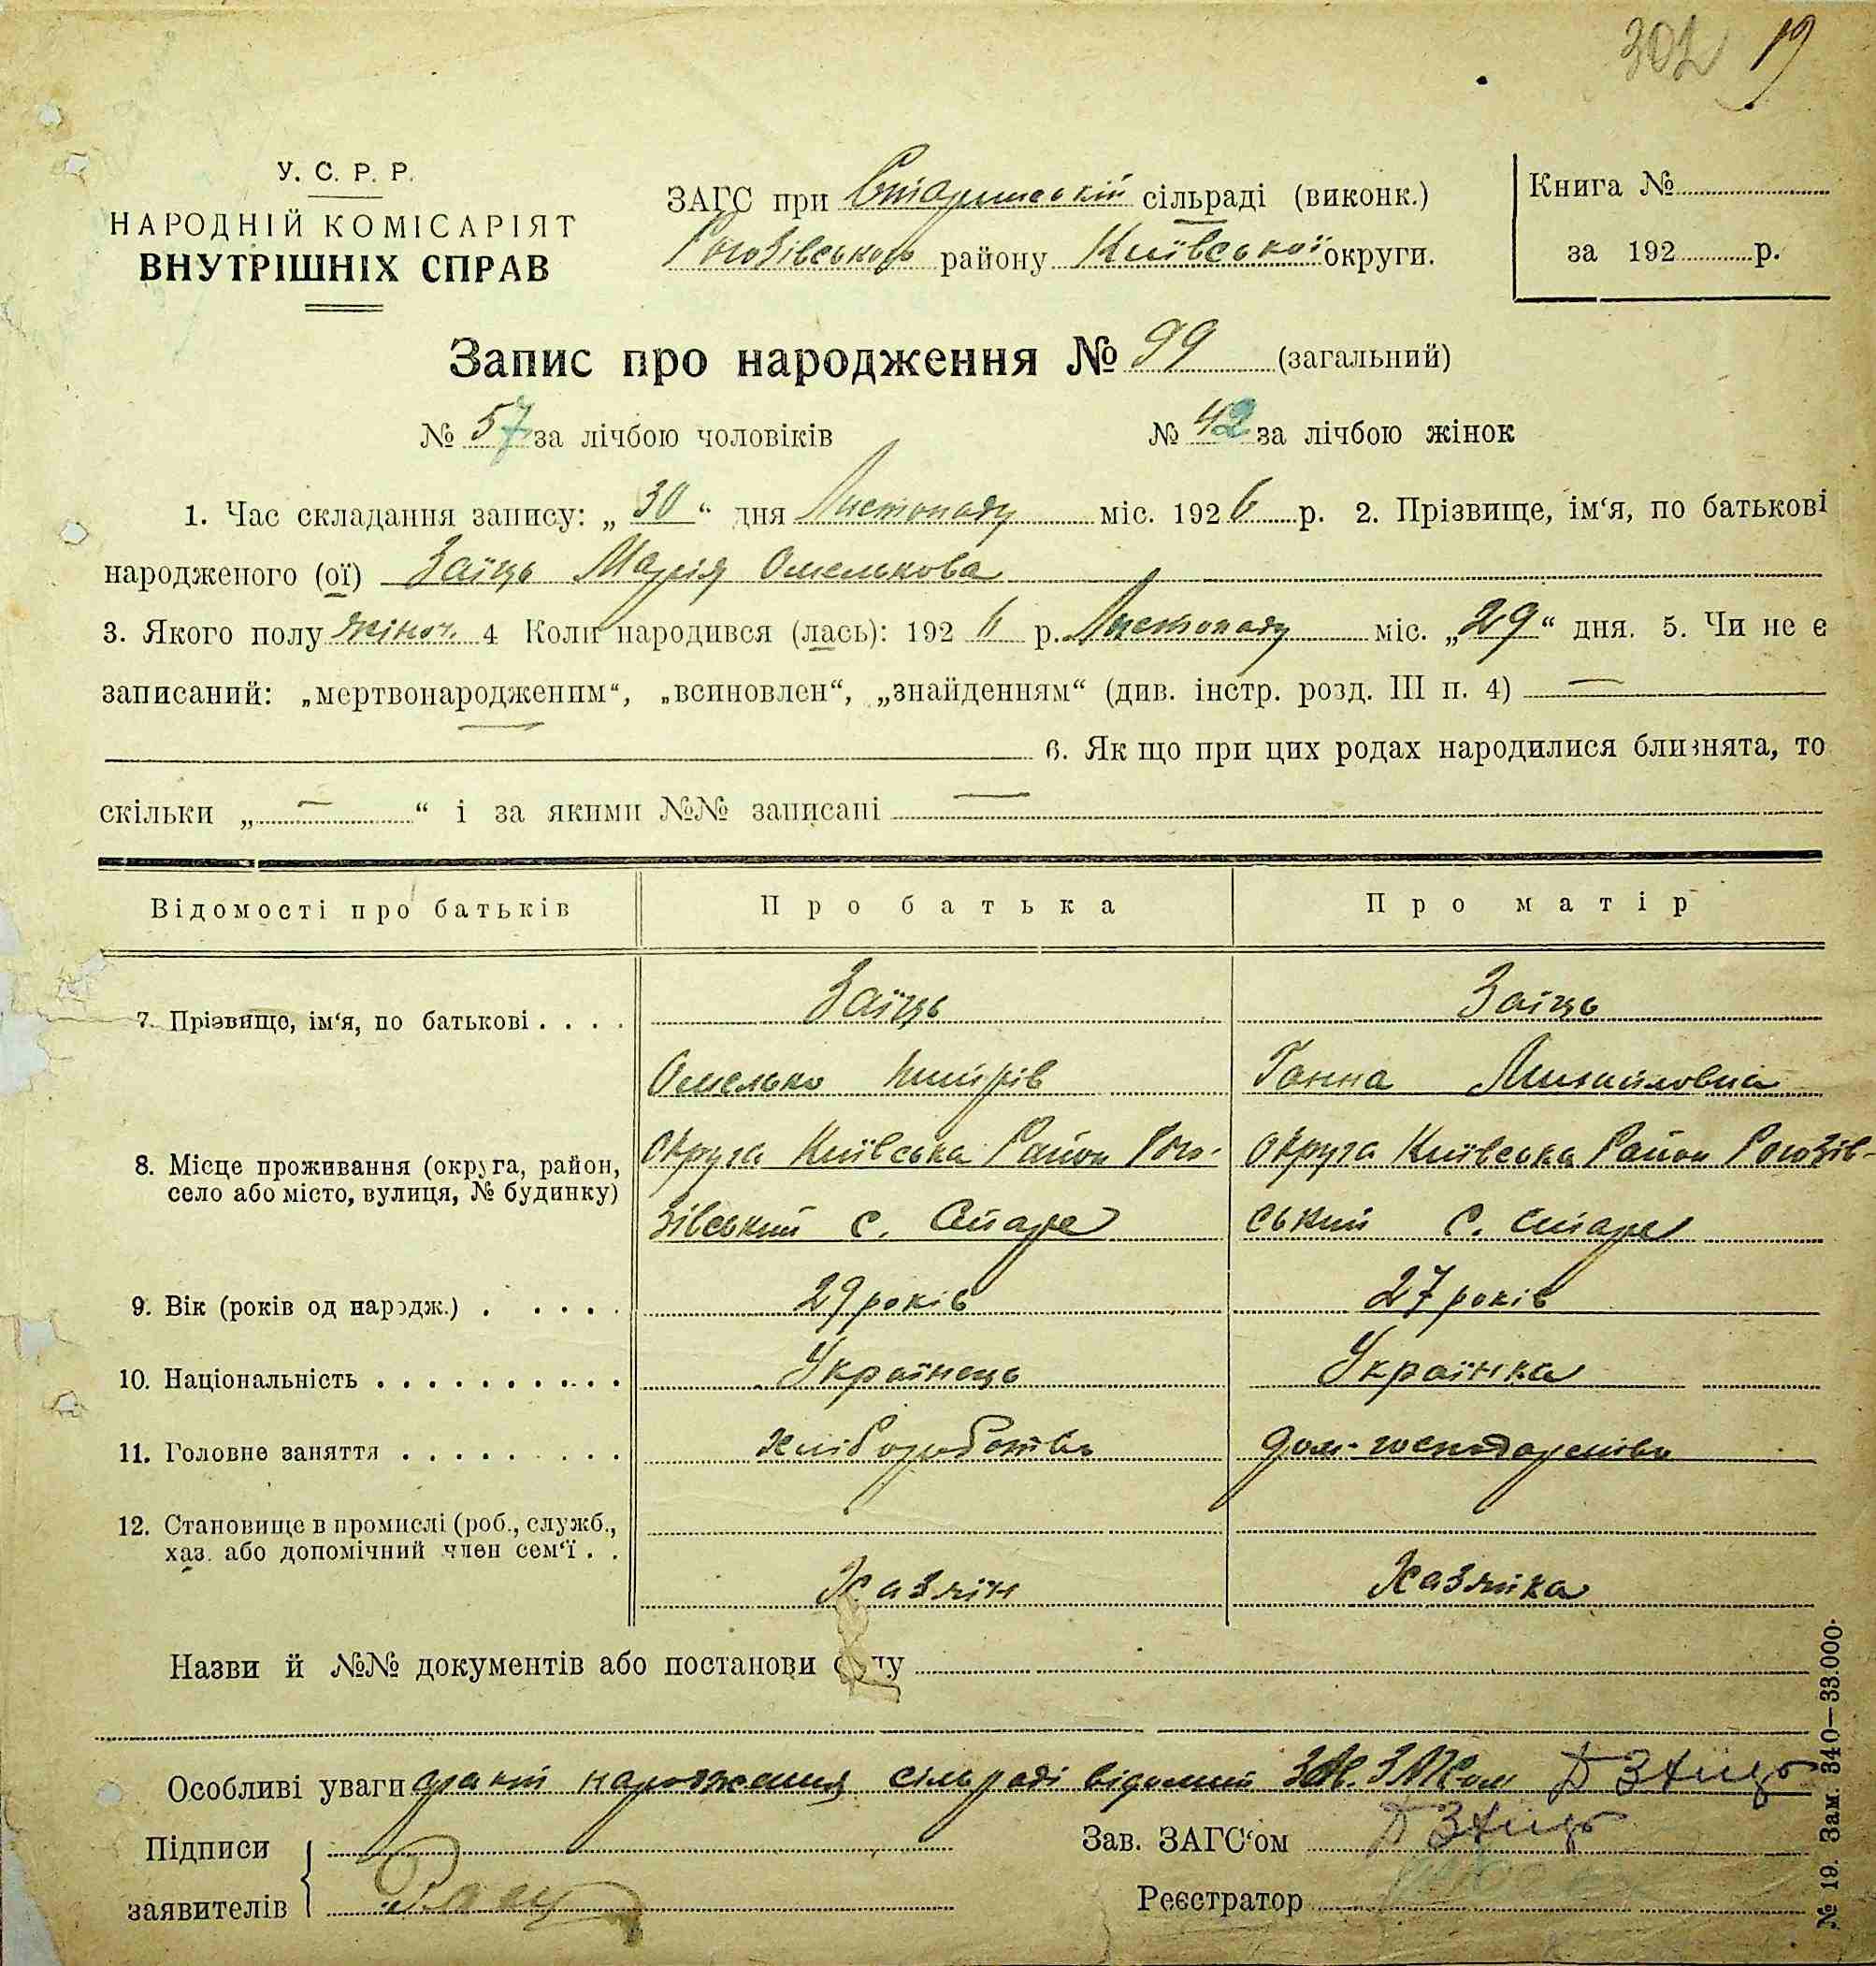 302 19
У. С. Р. Р.
НАРОДНІЙ КОМІСАРІЯТ
ВНУТРІШНІХ СПРАВ
ЗАГС при Старинській сільраді (виконк.)
Рогозівського району Київської округи.
Книга №
за 192 р.
Запис про народження № 99 (загальний)
№ 57 за лічбою чоловіків № 42 за лічбою жінок
1. Час складання запису: „ 30 “ дня Листопаду міс. 1926 р. 2. Прізвище, ім‘я, по батькові
народженого (ої) Заїць Марія Омелькова
3. Якого полу жіноч. 4 Коли народився (лась): 192 6 р. Листопаду міс. „29“ дня. 5. Чи не є
записаний: „мертвонародженим“, „всиновлен“, „знайденням“ (див. інстр. розд. III п. 4) —
6. Як що при цих родах народилися близнята, то
скільки „ — “ і за якими №№ записані —
Відомості про батьків Про батька Про матір
7. Прізвище, ім‘я, по батькові . . . . Заїць Заїць
Омелько Ганна Михайловна
8. Місце проживання (округа, район, Округа Київська Район Рого- Округа Київська Район Рогозів-
село або місто, вулиця, № будинку) зівський с. Старе ський с. Старе
9. Вік (років од народж.) . . . . . 29 років 27 років
10. Національність . . . . . . . . . . Українець Українка
11. Головне заняття . . . . . . . . . хліборобство дом-господарство
12. Становище в промислі (роб., служб.,
хаз. або допомічний член сем‘ї . .
Хазяїн Хазяйка
Назви й №№ документів або постанови суду
Особливі уваги факт народження сільраді відомий Зав. ЗАГСом Д Заиць
Підписи Зав. ЗАГС‘ом Д Заиць
заявителів Заиц Реєстратор
№ 19. Зам. 340—33.000.